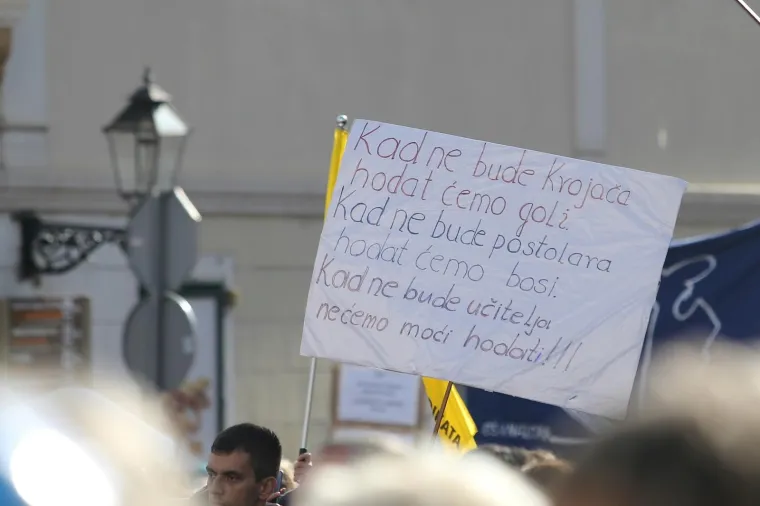 Kad ne bude Krojača
hodat ćemo goli.
Kad ne bude postolara
hodat ćemo bosi.
Kad ne bude učitelja
nećemo moći hodati!!!